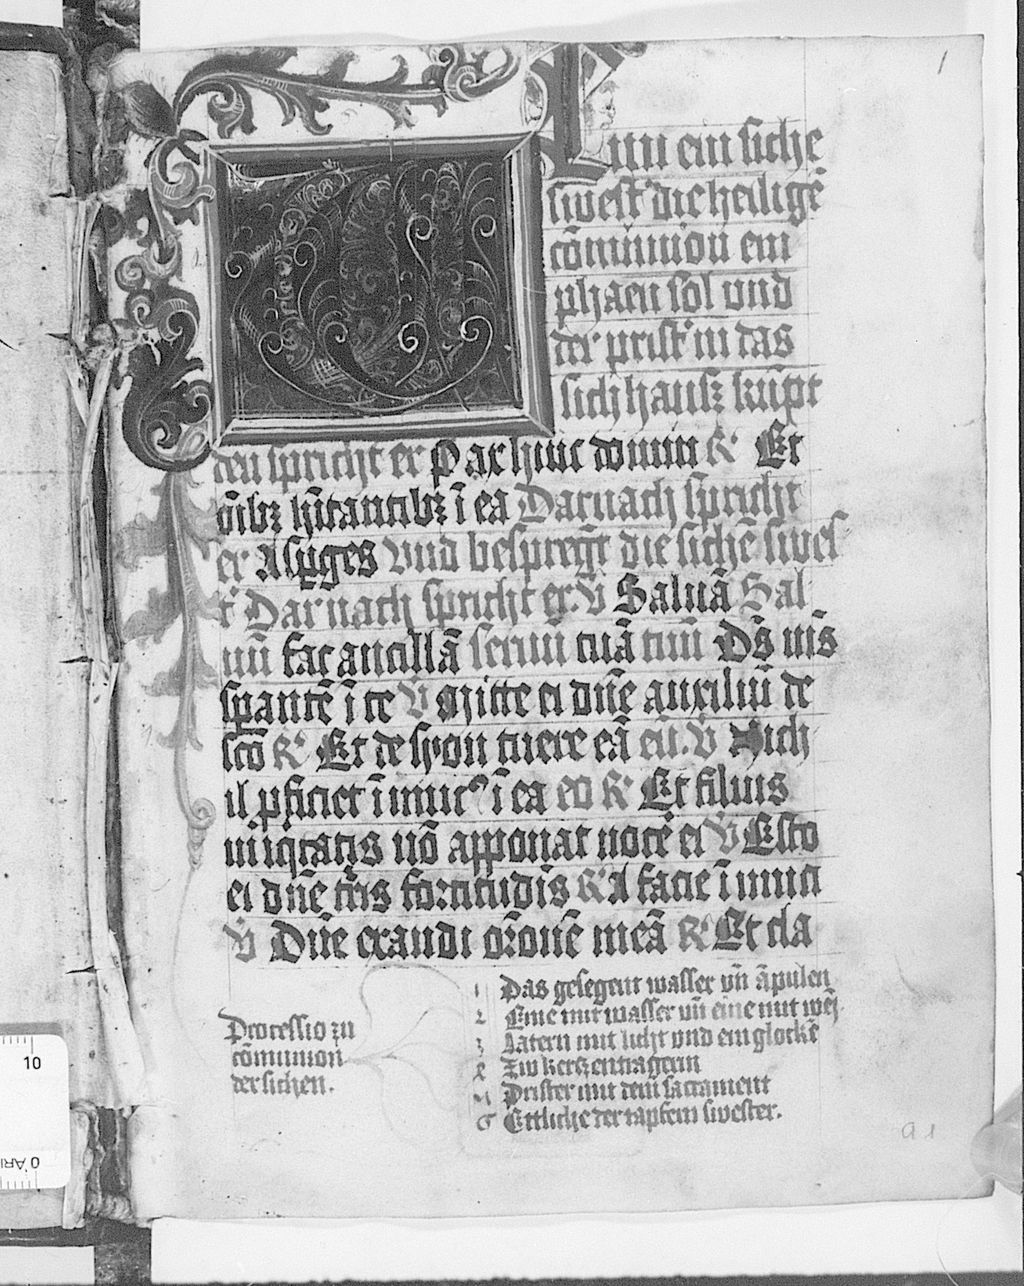 1
Nun ein siche
swest' die heiligē
cōmunion em
phaen sol vnd
der prist' in das
sichhausz kūpt
den spricht er Pax huic domui ℟ Et
oībꝫ hītantibꝫ ī ea Darnach spricht
er Aspges Vnd bespregt die sichē swes
t' Darnach spricht er. ℣ Saluā Sal
uū fac ancillā seruū tuā tuū Ds̄ ms̄
spantē ī te ℣ Mitte ei dn̄e auxiliū de
scō ℟ Et de syon tuere eā eū. ℣ Nich
il pficiet īimic⁹ ī ea eo ℟ Et filius
iniqtatis nō apponat nocē ei ℣ Esto
ei dn̄e trīs fortitudis ℟ A facie īimici
℣ Dn̄e exaudi orōnē meā ℟ Et cla
Processio zu
cōmunion
der sichen.
1 Das gesegent wasser vn̄ āpulen
2 Eine mit wasser vn̄ eine mit wēi
3 Latern mit licht vnd ein glockē
4 Zw kerczentragerin
5 Prister mit dem sacrament
6 Ettliche der tapfern swester.
a 1
10
0